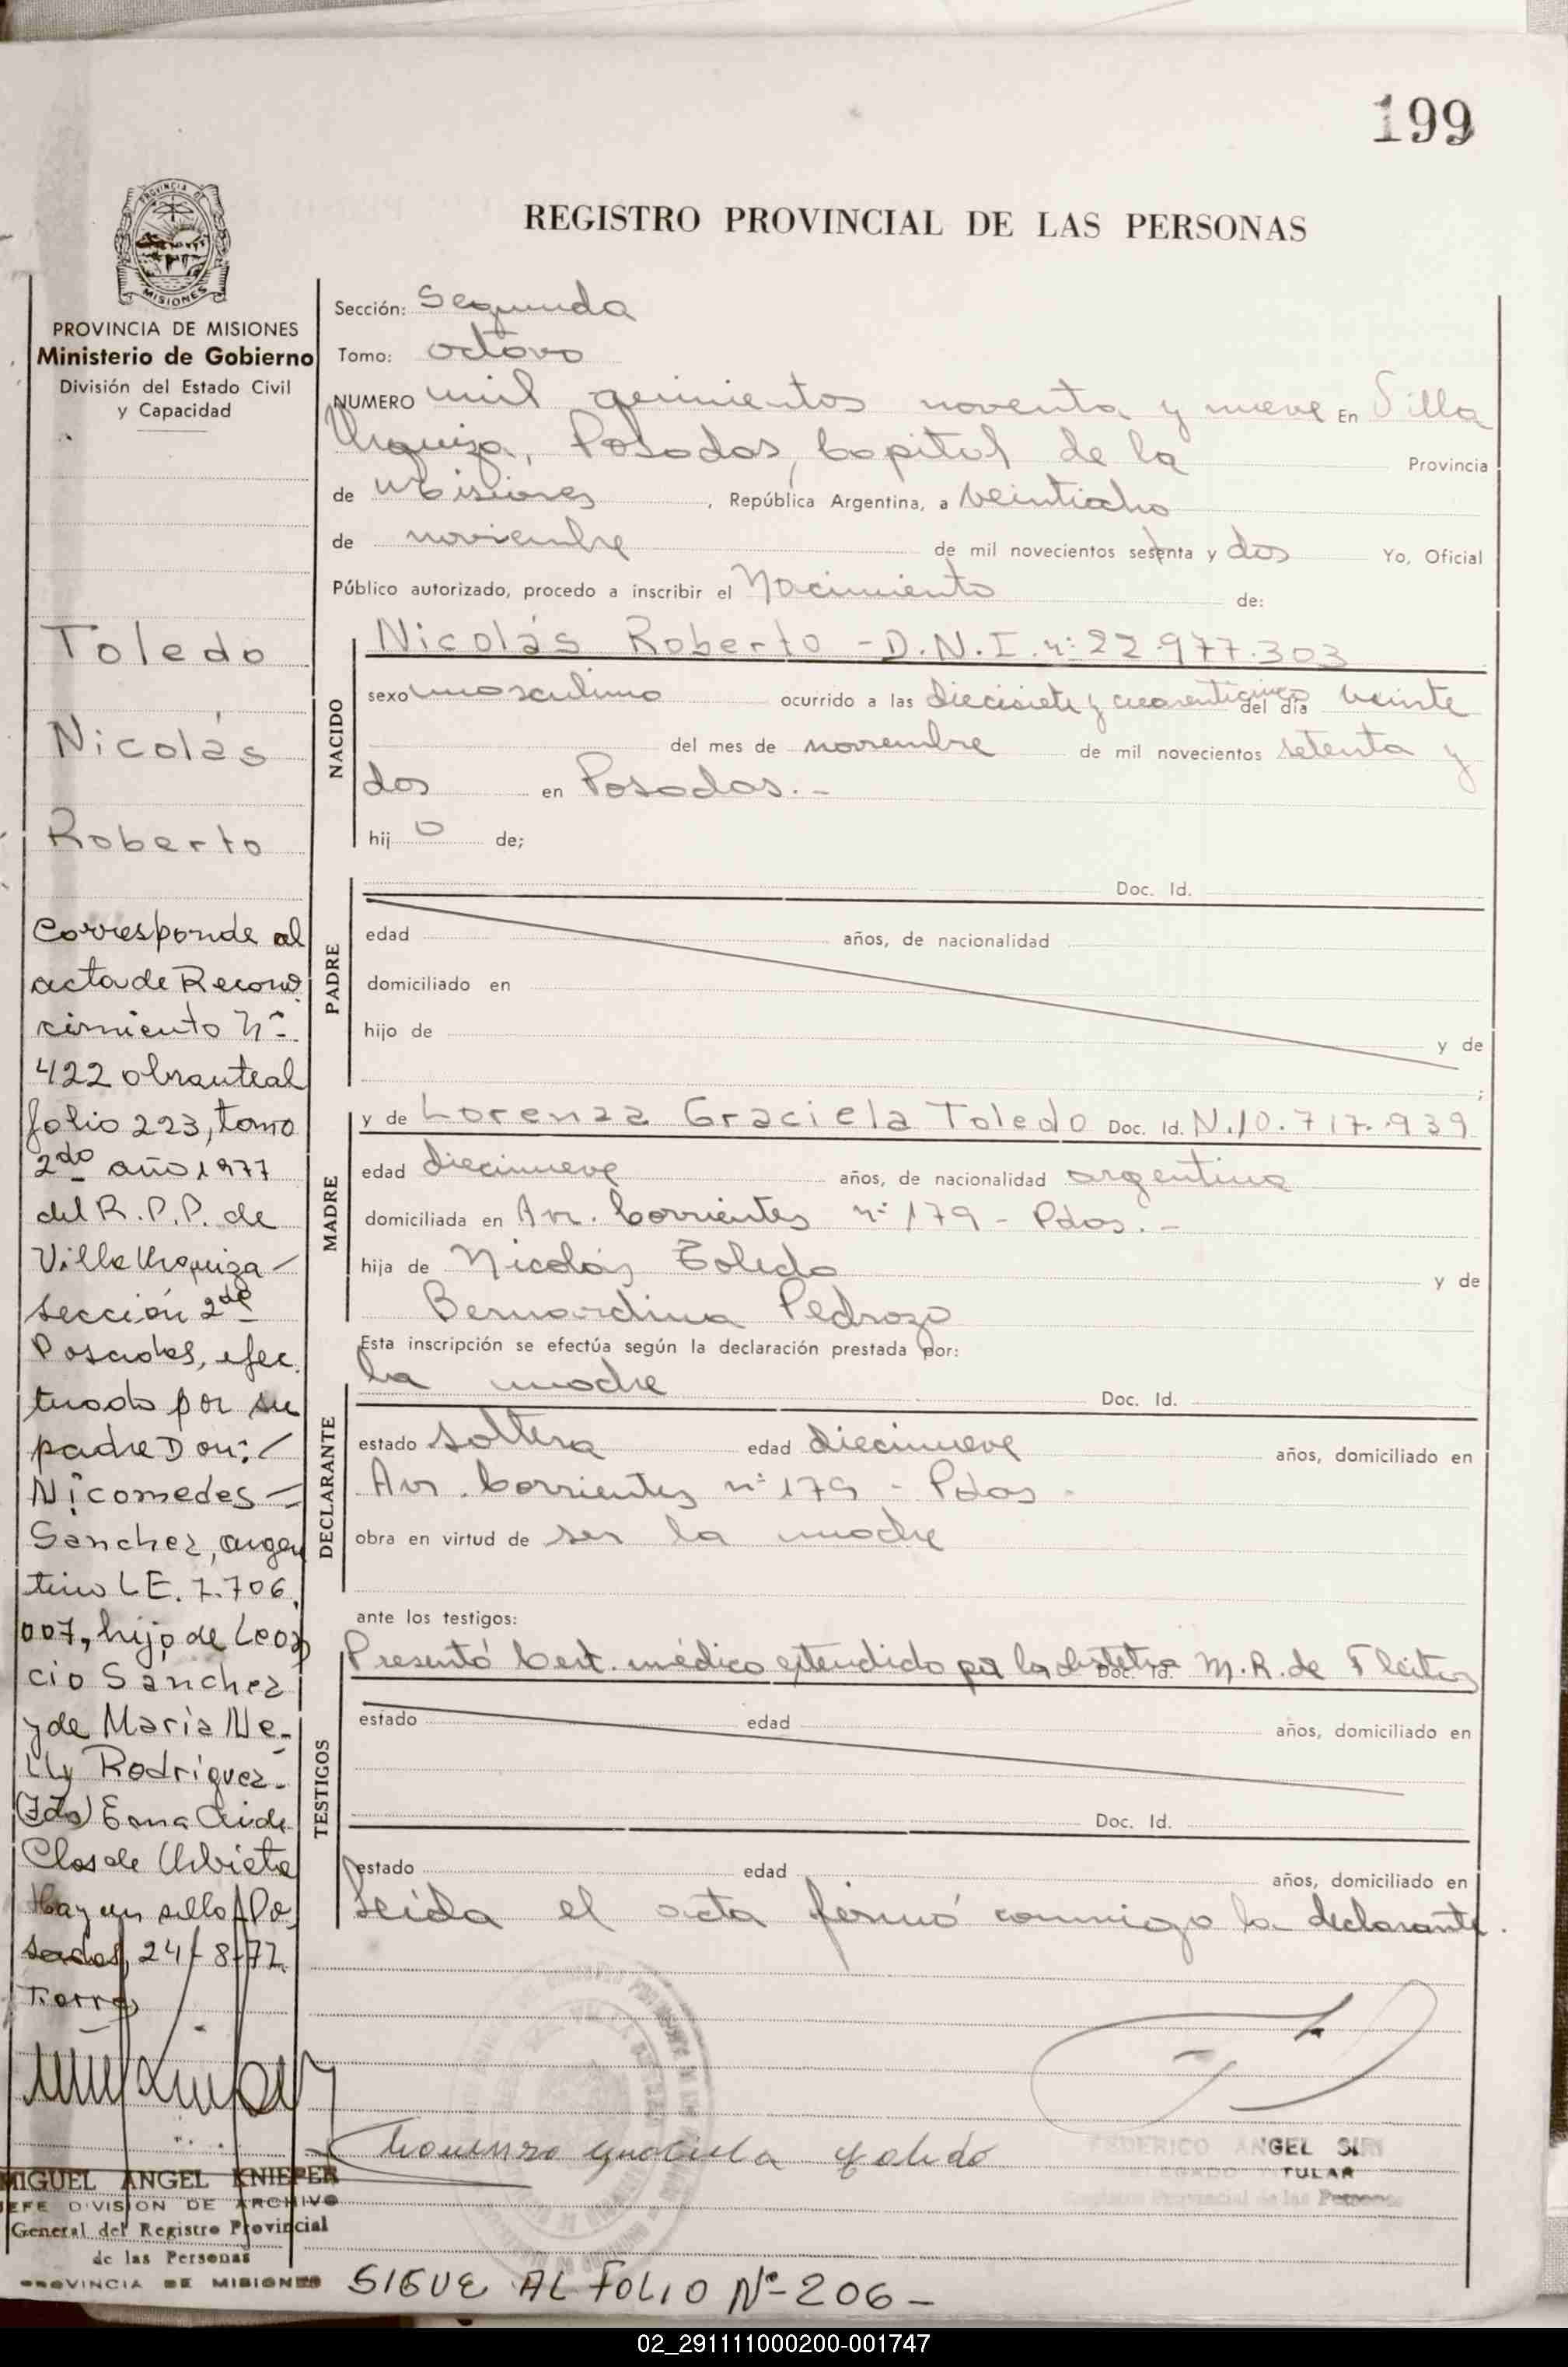 199
PROVINCIA DE
MISIONES
REGISTRO PROVINCIAL DE LAS PERSONAS
PROVINCIA DE MISIONES
Ministerio de Gobierno
División del Estado Civil
y Capacidad
Toledo
Nicolás
Roberto
Corresponde al
acta de Recono
cimiento Nº
422 obrante al
folio 223, tomo
2do año 1977
del R.P.P. de
Villa Urquiza-
sección 2da
Posadas, efec
tuado por su
padre Don:
Nicomedes-
Sanchez, argen
tino L.E. 7.706.
007, hijo de Leon
cio Sanchez
y de María Ne-
lly Rodriguez-
(Fdo) Erna Aide
Clos de Urbieta
Hay un sello Po
sadas, 24-8-77
MIGUEL ANGEL KNIEPER
JEFE DIVISION DE ARCHIVO
General del Registro Provincial
de las Personas
PROVINCIA DE MISIONES
Sección: Segunda
Tomo: octavo
NUMERO mil quinientos noventa y nueve En Villa
Urquiza, Posadas, Capital de la Provincia
de Misiones, República Argentina, a veintiocho
de noviembre de mil novecientos setenta y dos Yo, Oficial
Público autorizado, procedo a inscribir el Nacimiento de:
NACIDO
Nicolás Roberto - D.N.I. nº 22.977.303
sexo masculino ocurrido a las diecisiete y cuarenticinco del día veinte
del mes de noviembre de mil novecientos setenta y
dos en Posadas.-
hij o de;
PADRE
Doc. Id.
edad años, de nacionalidad
domiciliado en
hijo de y de
;
MADRE
y de Lorenza Graciela Toledo Doc. Id. N.10.717.939
edad diecinueve años, de nacionalidad argentina
domiciliada en Av. Corrientes nº 179 - Pdas.-
hija de Nicolás Toledo y de
Bernardina Pedrozo
Esta inscripción se efectúa según la declaración prestada por:
DECLARANTE
la madre Doc. Id.
estado soltera edad diecinueve años, domiciliado en
Av. Corrientes nº 179 - Pdas -
obra en virtud de ser la madre
ante los testigos:
TESTIGOS
Presentó Cert. médico extendido por la obstetra Doc. Id. M.R. de Fleitas
estado edad años, domiciliado en
Doc. Id.
estado edad años, domiciliado en
Leida el acta firmó conmigo la declarante.
Lorenza Graciela Toledo
FEDERICO ANGEL SIRI
TULAR
Registro Provincial de las Personas
SIGUE AL FOLIO Nº 206-
02_291111000200-001747